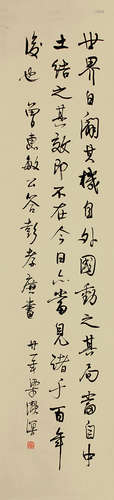 世界日闢其機自外國動之其局當自中
土結之其效即不在今日亦當見諸于百年
後也　曾惠敏公答彭孝廉書
廿一年梁漱溟